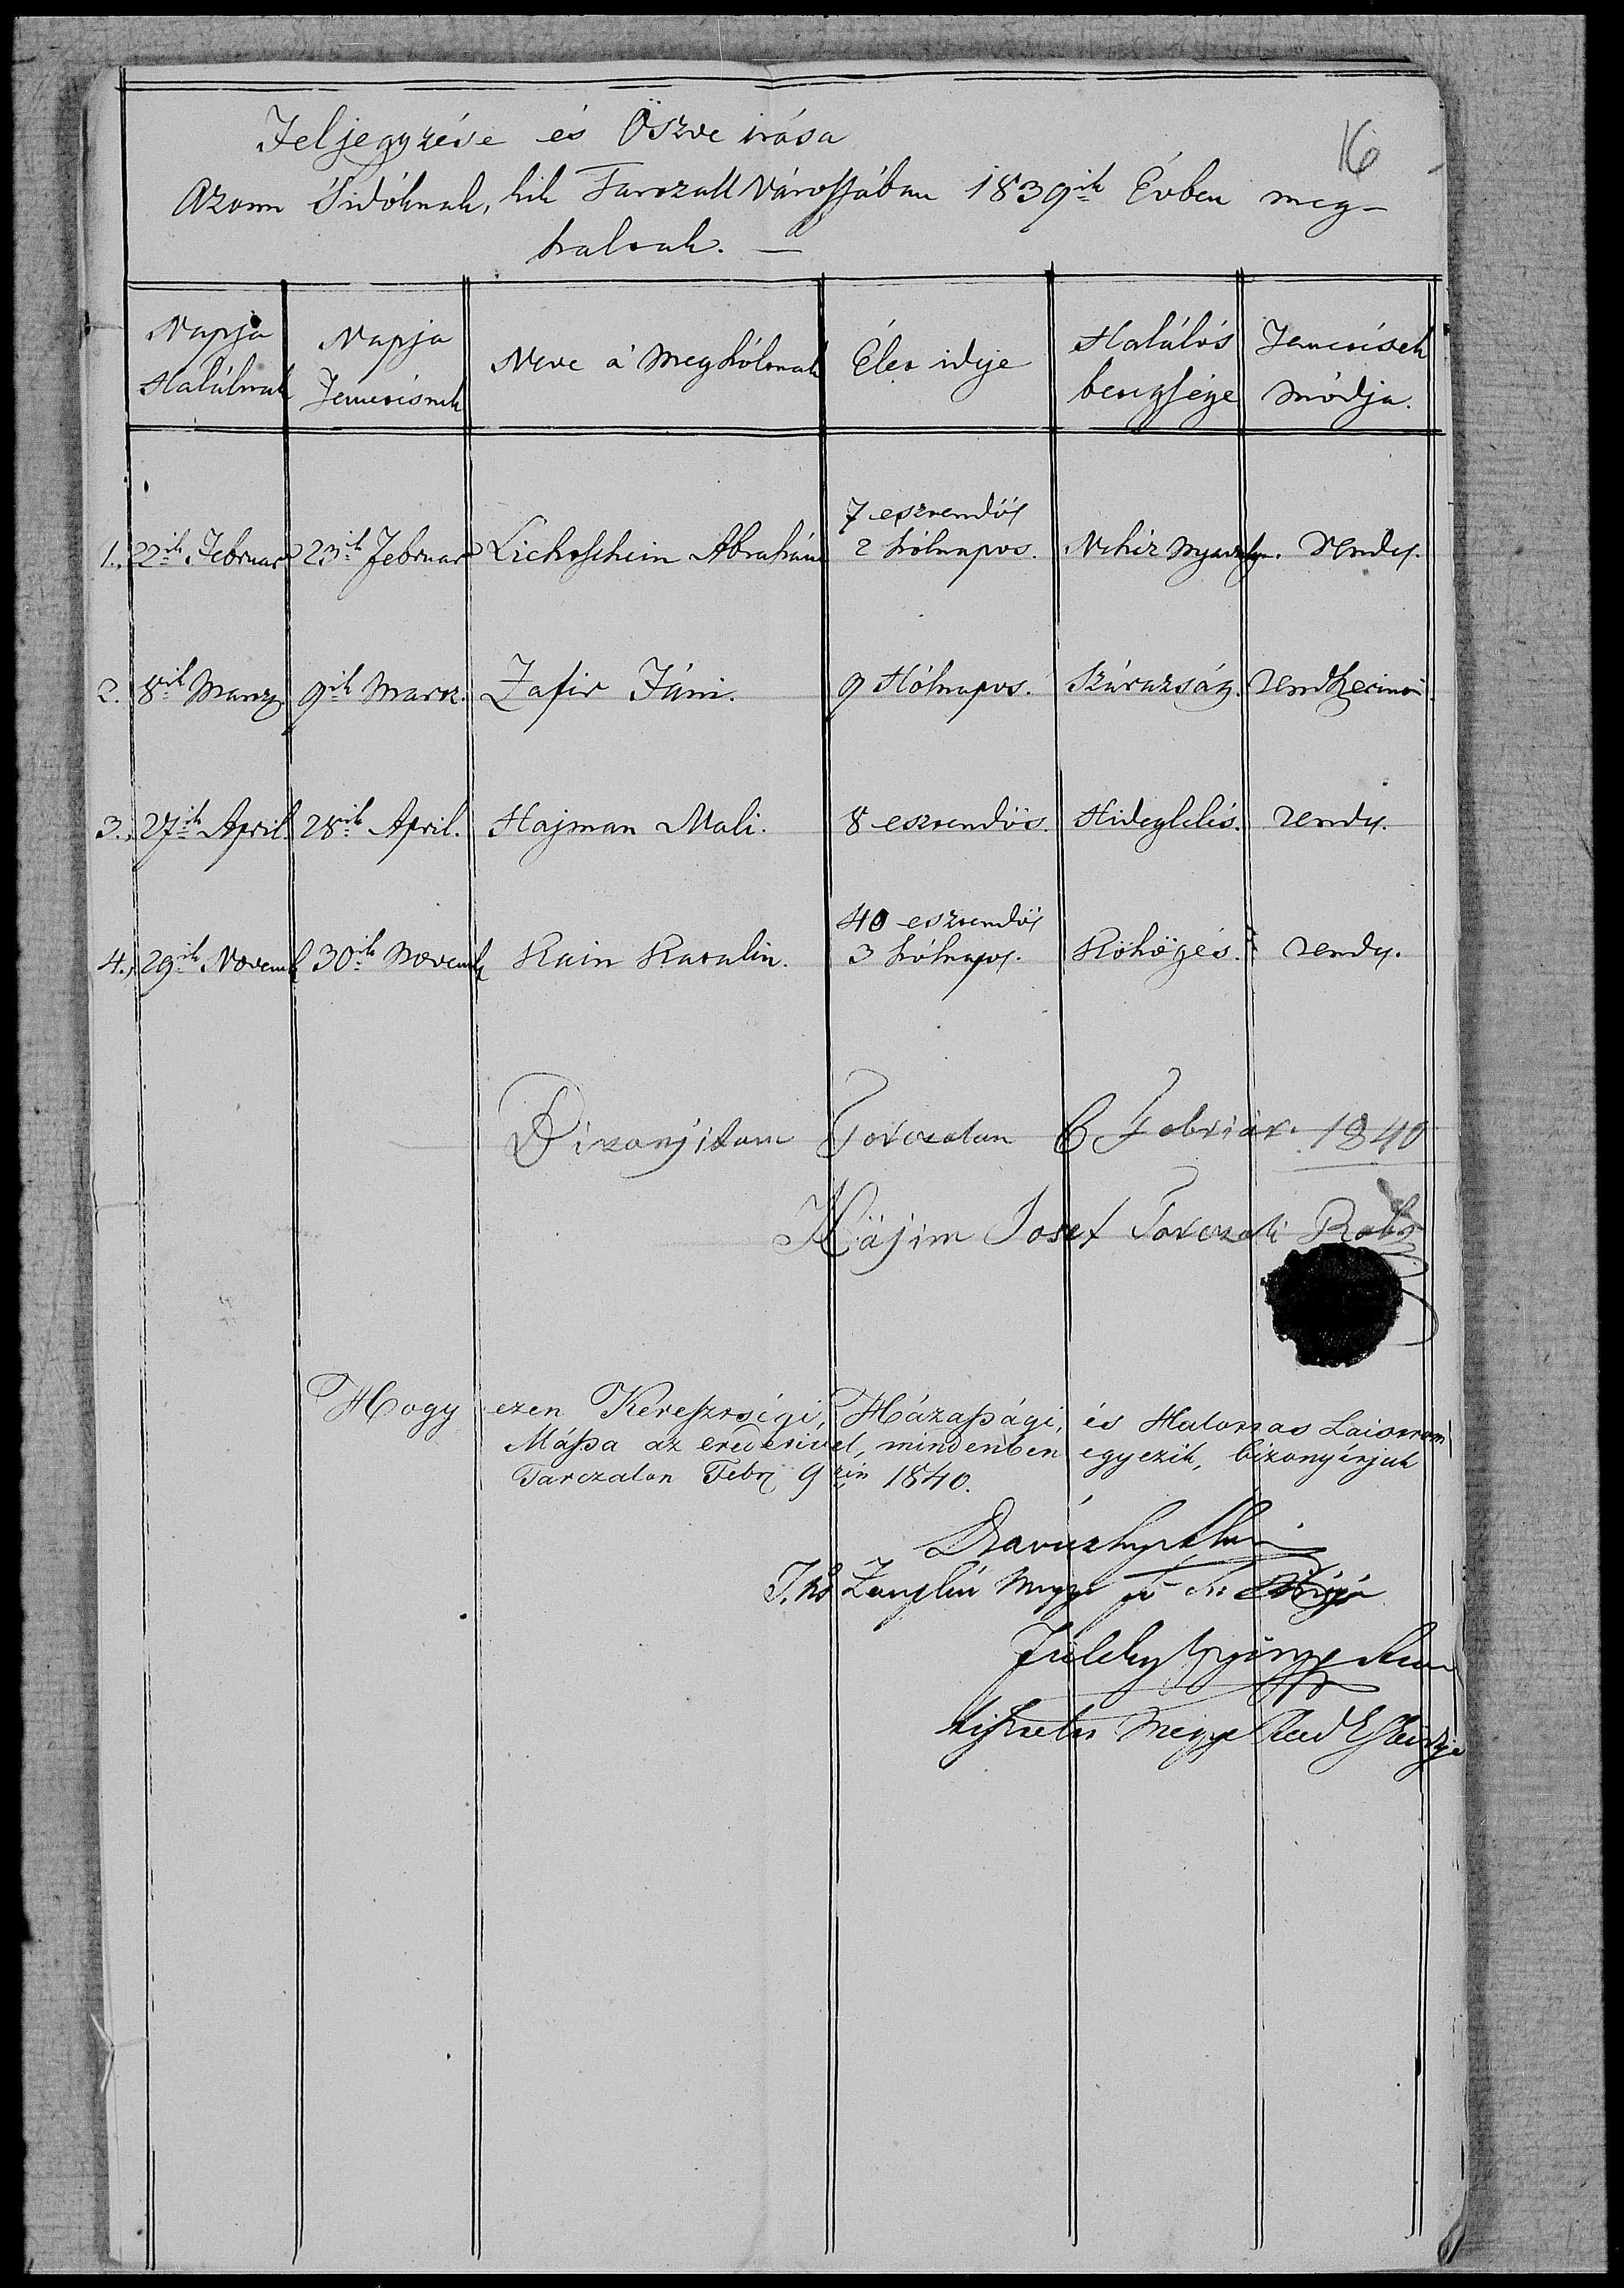 Feljegyzése és Öszve irása
16
Azonn 'Sidóknak, kik Tarczall Várossában 1839ik Évben meg-
haltak. —
Napja Halálnak
Napja Temetésnek
Neve á Meghóltnak
Élet ideje
Halálós betegsége
Temetések módja.
1., 22ik Februar 23ik Februar Lichtschein Abrahám 7 esztendős 2 hólnapos. Nehéz nyavalya. rendes.
2. 8ik Marcz 9ik Marcz. Zafir Fáni. 9 Hólnapos. Szárazság. rendszerinti.
3., 27ik April 28ik April. Hajman Mali. 8 esztendös. Hideglelés. rendes.
4., 29ik Novemb 30ik Novemb Kain Karalin. 40 esztendös 3 hólnapos. Köhögés. rendes.
Bizonjitom Torczalan 6 Februar. 1840
Häjim Josef Torczali Rabi
Hogy ezen Keresztségi, Házassági, és Halottas Laistrom
Mássa az eredetivel, mindenben egyezik, bizonyítjuk
Tarczalon Febr 9én 1840.
Zemplén Megye
György
Megye